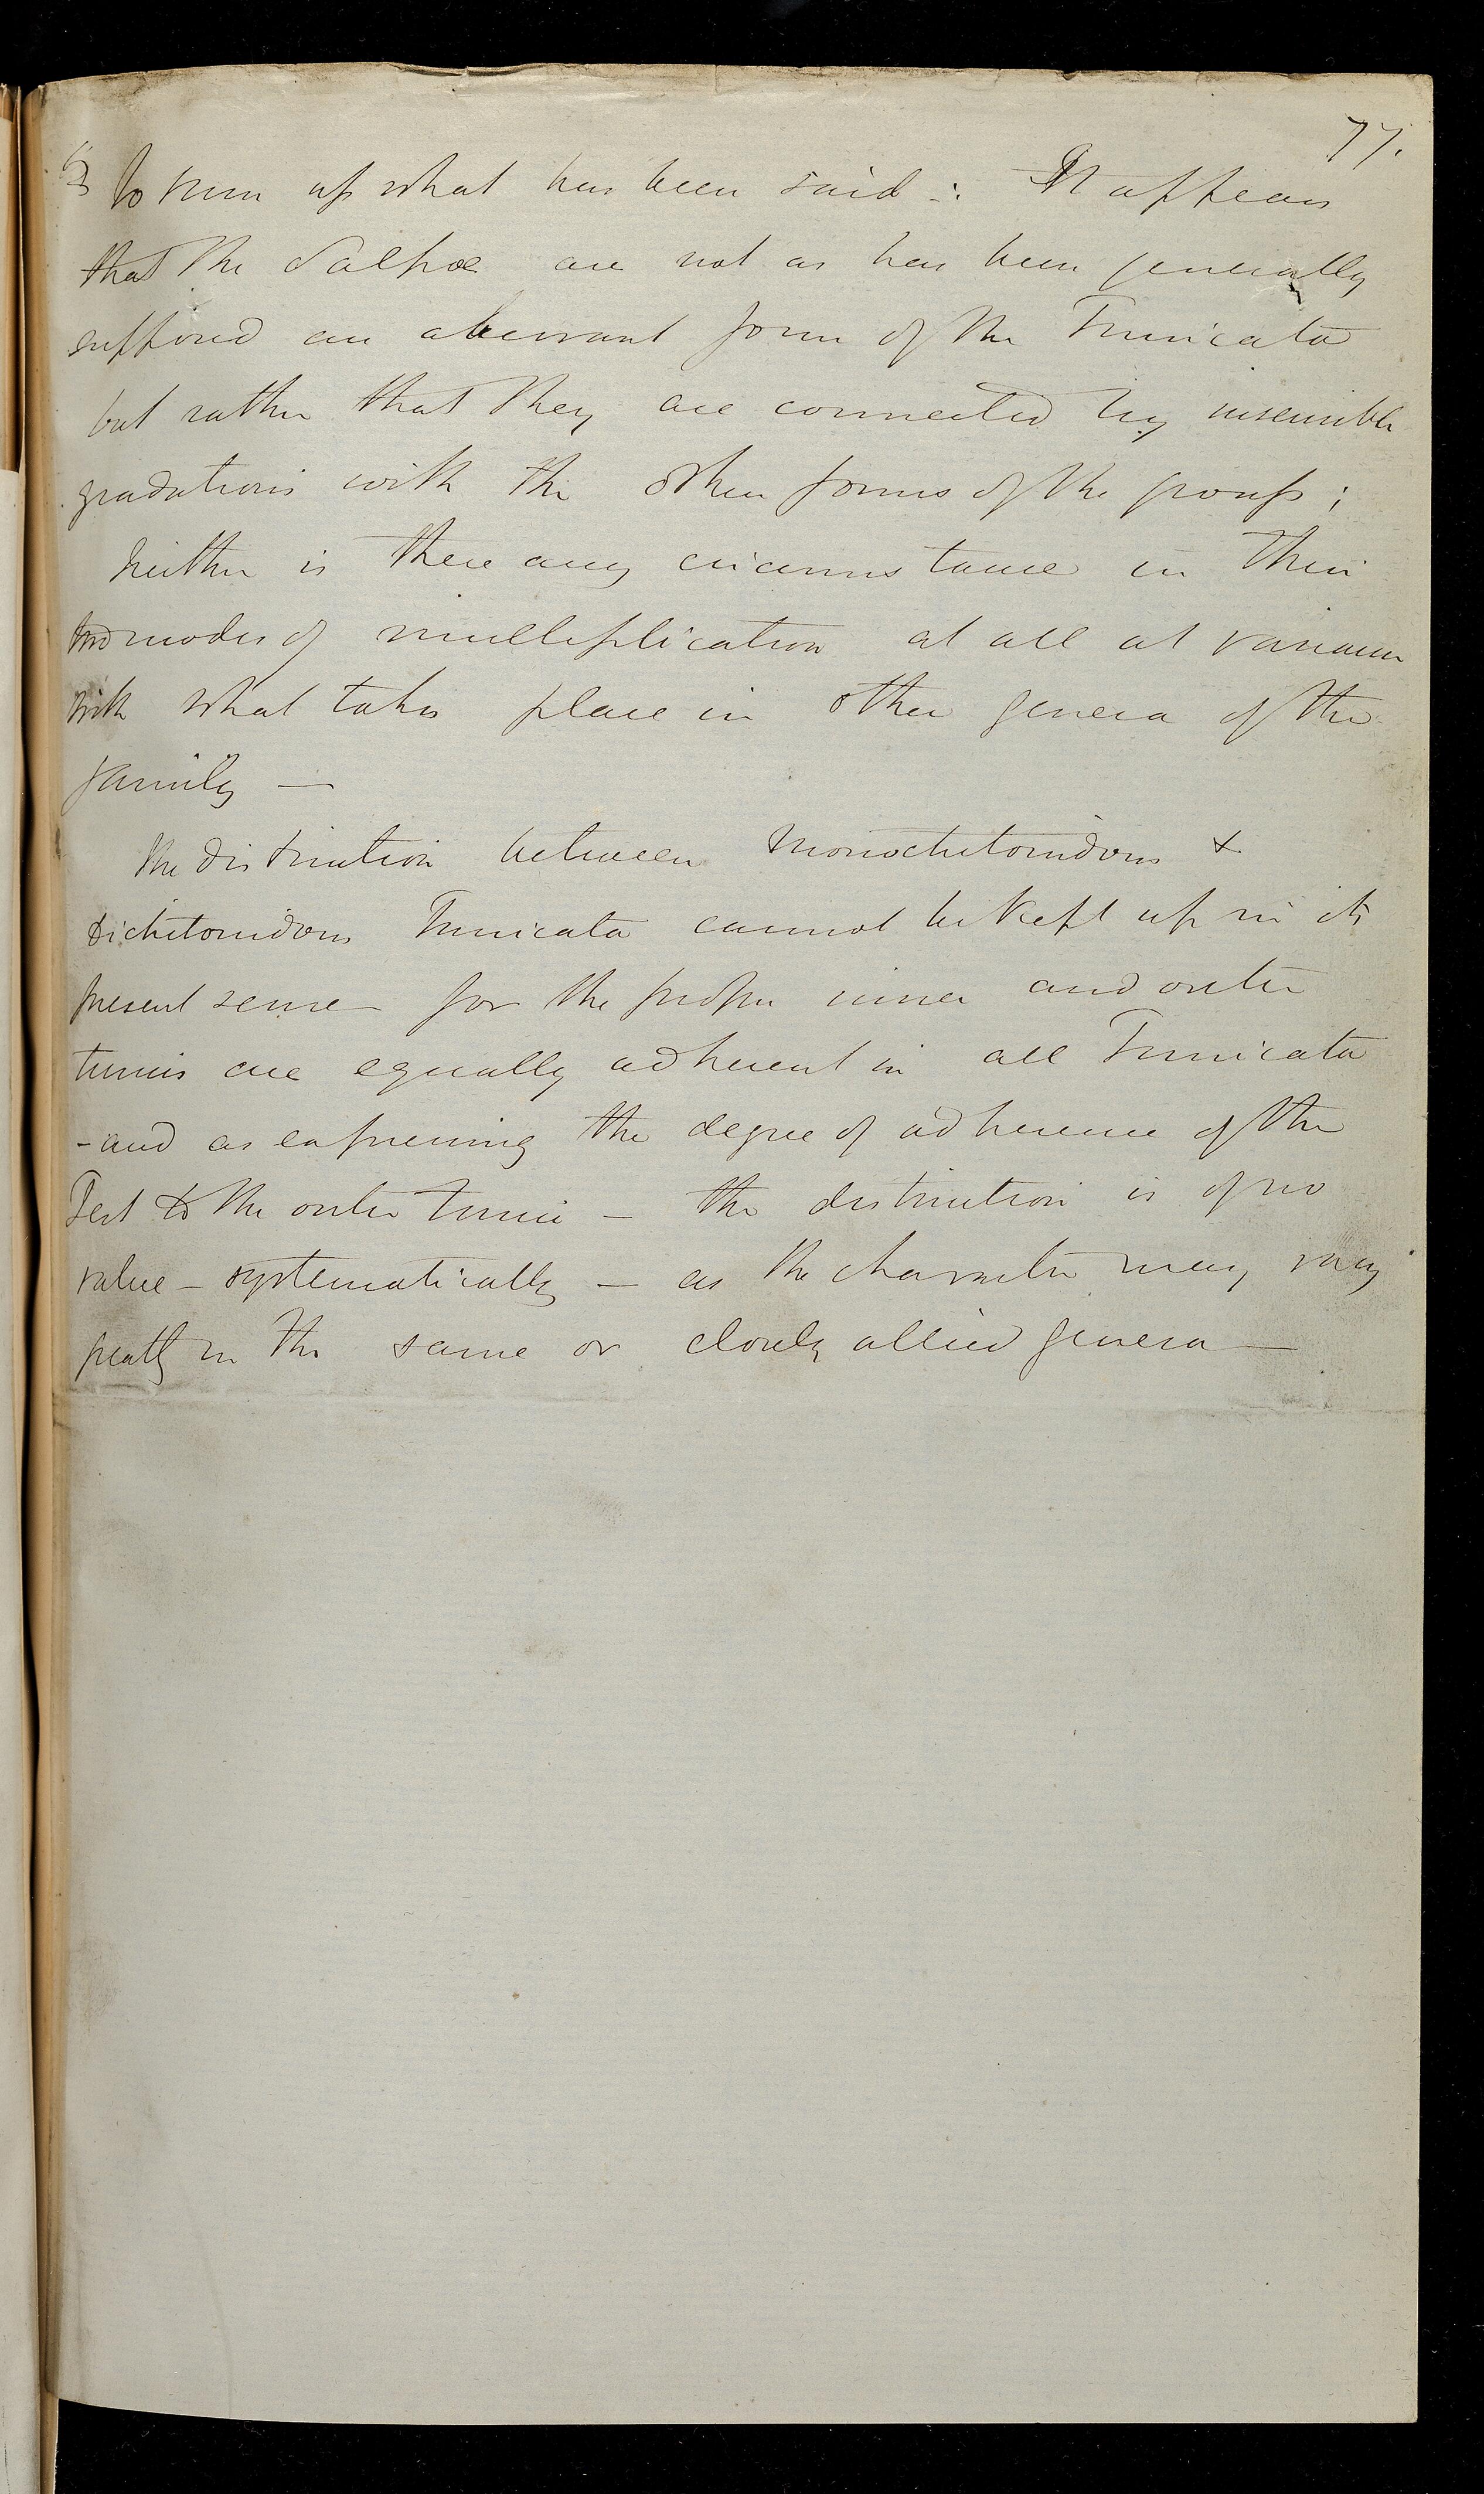 77.
To sum up what has been said: It appears
that the Salpæ are not as has been generally
supposed an aberrant form of the Tunicata
but rather that they are connected by insensible
gradations with the other forms of the group;
Neither is there any circumstance in their
two modes of multiplication at all at variance
with what takes place in other genera of the
family —
The distinction between Monochitonidous &
Dichitonidous Tunicata cannot be kept up in its
present sense for the proper inner and outer
tunics are equally adherent in all Tunicata
- and as expressing the degree of adherence of the
Test to the outer tunic — the distinction is of no
value — systematically — as the character may vary
greatly in the same or closely allied genera —